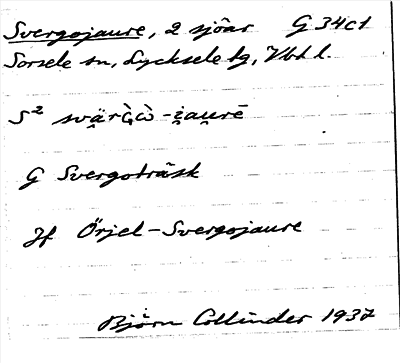 Svergojaure, 2 sjöar G 34c1
Sorsele sn, Lycksele lg, Vbt l.
G Svergoträsk
Jf Örjel-Svergojaure
Björn Collinder 1937